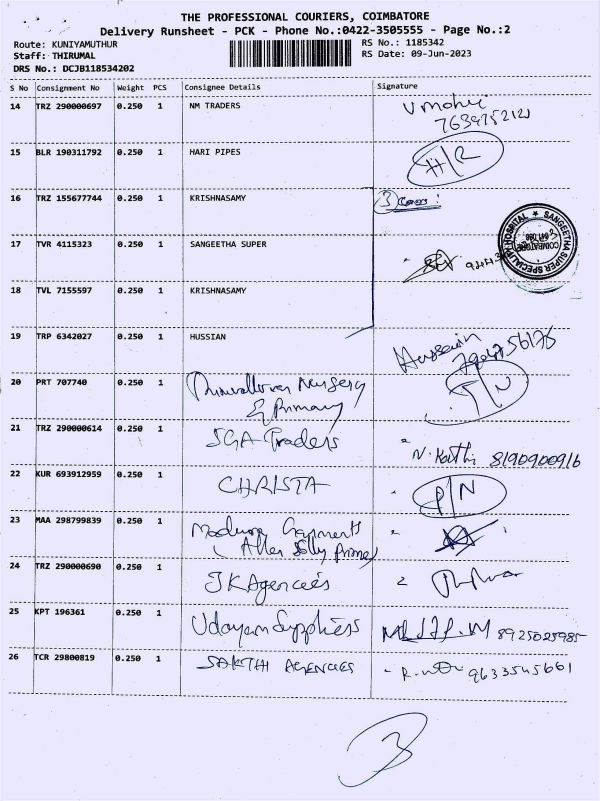 THE PROFESSIONAL COURIERS, COIMBATORE
Delivery Runsheet - PCK - Phone No.:0422-3505555 - Page No.:2
Route: KUNIYAMUTHUR
RS No.: 1185342
Staff: THIRUMAL
RS Date: 09-Jun-2023
DRS No.: DCJB118534202
S No Consignment No Weight PCS Consignee Details Signature
14 TRZ 290000697 0.250 1 NM TRADERS
15 BLR 190311792 0.250 1 HARI PIPES H/R
16 TRZ 155677744 0.250 1 KRISHNASAMY 3
17 TVR 4115323 0.250 1 SANGEETHA SUPER
SANGEETHA SUPER SPECIALITY HOSPITAL
COIMBATORE
18 TVL 7155597 0.250 1 KRISHNASAMY
19 TRP 6342027 0.250 1 HUSSIAN Hussain
20 PRT 707740 0.250 1 Thiruvalluvar Nursery T/N
& Primary
21 TRZ 290000614 0.250 1 SGA Traders N. Karthi 8190900916
22 KUR 693912959 0.250 1 CHRISTA P/N
23 MAA 298799839 0.250 1 Madura Garments
24 TRZ 290000690 0.250 1 JK Agencies
25 KPT 196361 0.250 1 Udayam Suppliers 8925025985
26 TCR 29800819 0.250 1 SAKTHI AGENCIES 9633545661
3